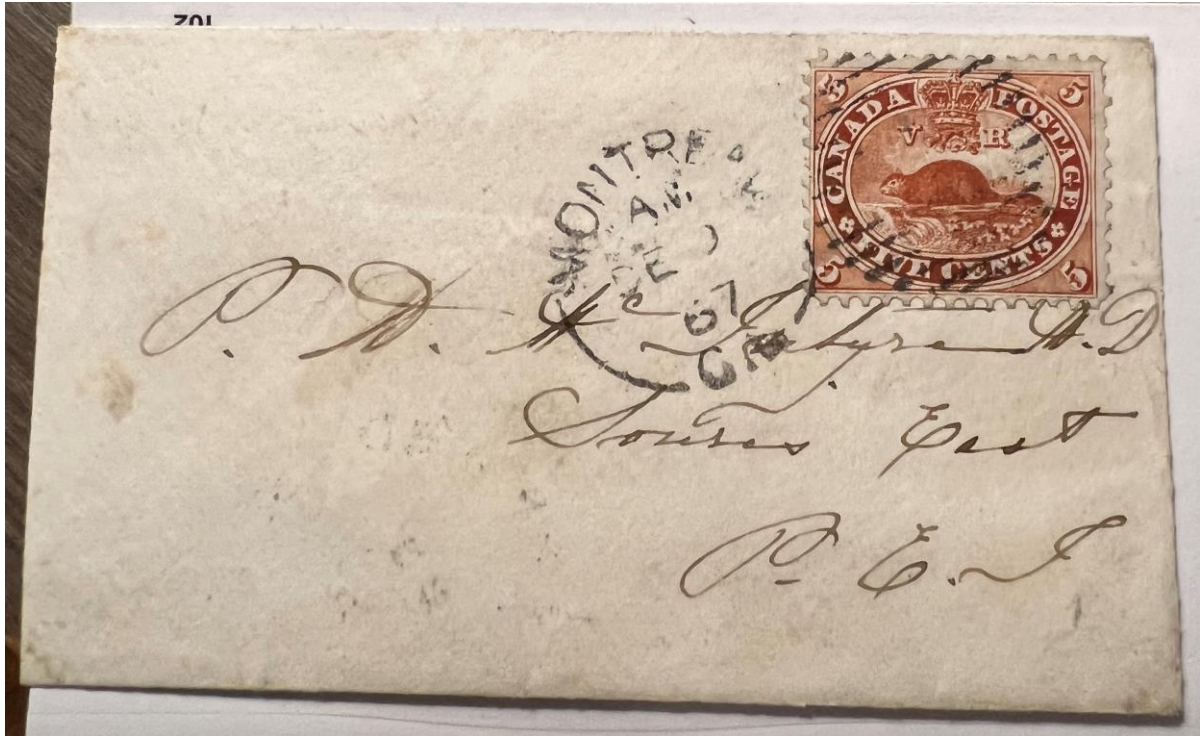 102
5 5
CANADA POSTAGE
V R
FIVE CENTS
5 5
MONTREAL
AM
FE
67
P. D. Mc Intyre M.D
Souris East
P. E. I